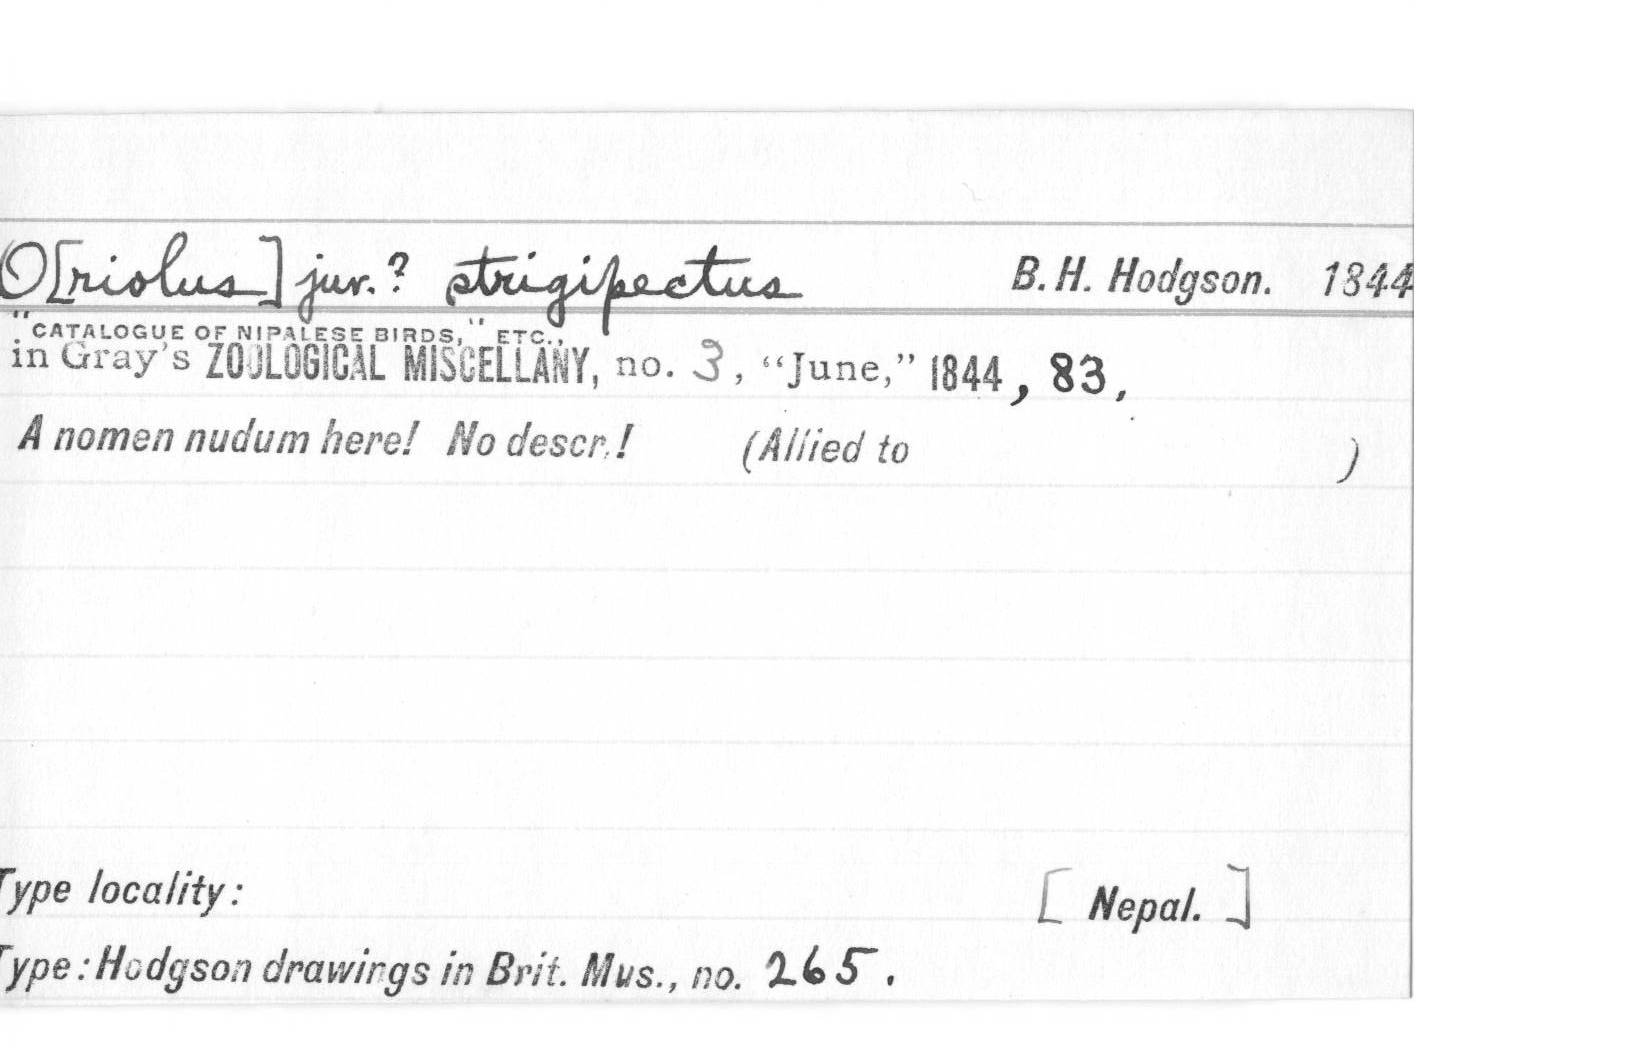 O[riolus] juv.? strigipectus B. H. Hodgson. 1844
"CATALOGUE OF NIPALESE BIRDS," ETC.,
in Gray's ZOOLOGICAL MISCELLANY, no. 3, “June,” 1844, 83,
A nomen nudum here! No descr.! (Allied to )
Type locality: [Nepal.]
Type: Hodgson drawings in Brit. Mus., no. 265.